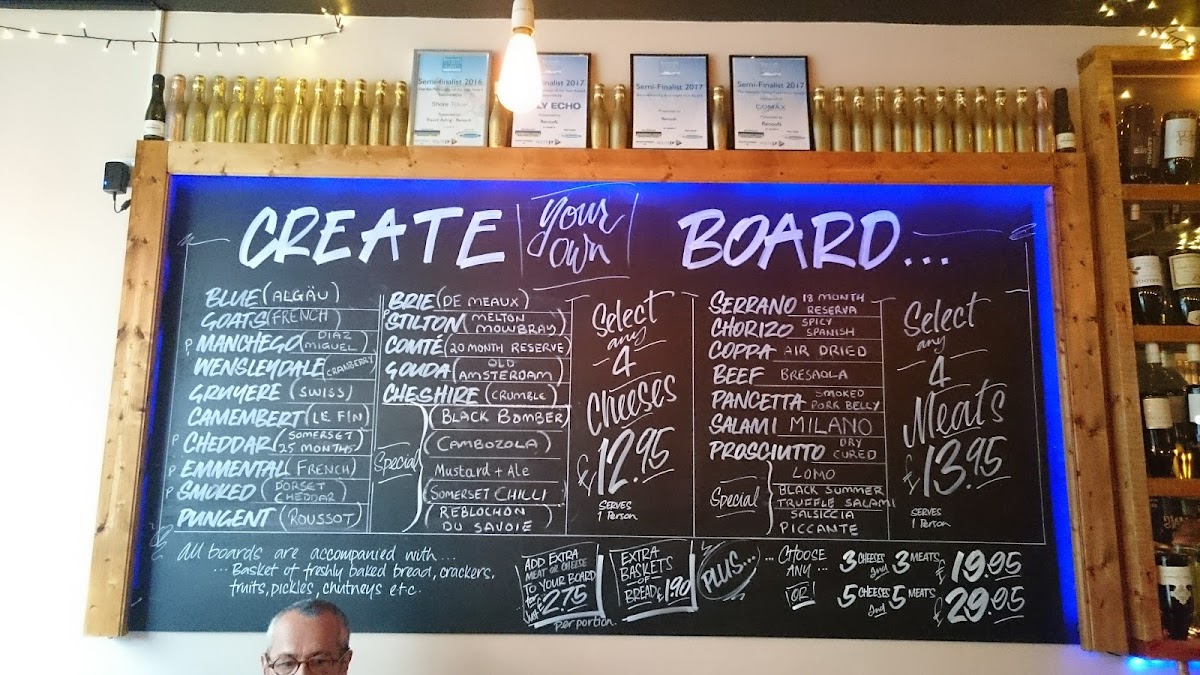 Semi-finalist 2016
Shore
Semi-Finalist 2017
LY ECHO
Semi-Finalist 2017
Semi-Finalist 2017
COMAX
CREATE your own BOARD...
BLUE (ALGÄU)
GOATS (FRENCH)
P MANCHEGO (DIAZ MIGUEL)
WENSLEYDALE (CRANBERRY)
GRUYERE (SWISS)
CAMEMBERT (LE FIN)
P CHEDDAR (SOMERSET 25 MONTHS)
P EMMENTAL (FRENCH)
P SMOKED (DORSET CHEDDAR)
PUNGENT (ROUSSOT)
BRIE (DE MEAUX)
P STILTON (MELTON MOWBRAY)
COMTÉ (20 MONTH RESERVE)
GOUDA (OLD AMSTERDAM)
CHESHIRE (CRUMBLE)
Special
(BLACK BOMBER)
(CAMBOZOLA)
Mustard + Ale
(SOMERSET CHILLI)
(REBLOCHON
DU SAVOIE)
Select
any
4
Cheeses
£12.95
SERVES
1 Person
SERRANO 18 MONTH RESERVA
CHORIZO SPICY SPANISH
COPPA AIR DRIED
BEEF BRESAOLA
PANCETTA SMOKED PORK BELLY
SALAMI MILANO
PROSCIUTTO DRY CURED
Special
LOMO
BLACK SUMMER
TRUFFLE SALAMI
SALSICCIA
PICCANTE
Select
any
4
Meats
£13.95
SERVES
1 Person
All boards are accompanied with...
...Basket of freshly baked bread, crackers,
fruits, pickles, chutneys etc.
ADD EXTRA
MEAT OR CHEESE
TO YOUR BOARD
£2.75
per portion
EXTRA
BASKETS
-OF-
BREAD £1.90
PLUS...
...CHOOSE ANY... 3 CHEESES and 3 MEATS £19.95
OR! 5 CHEESES and 5 MEATS £29.95